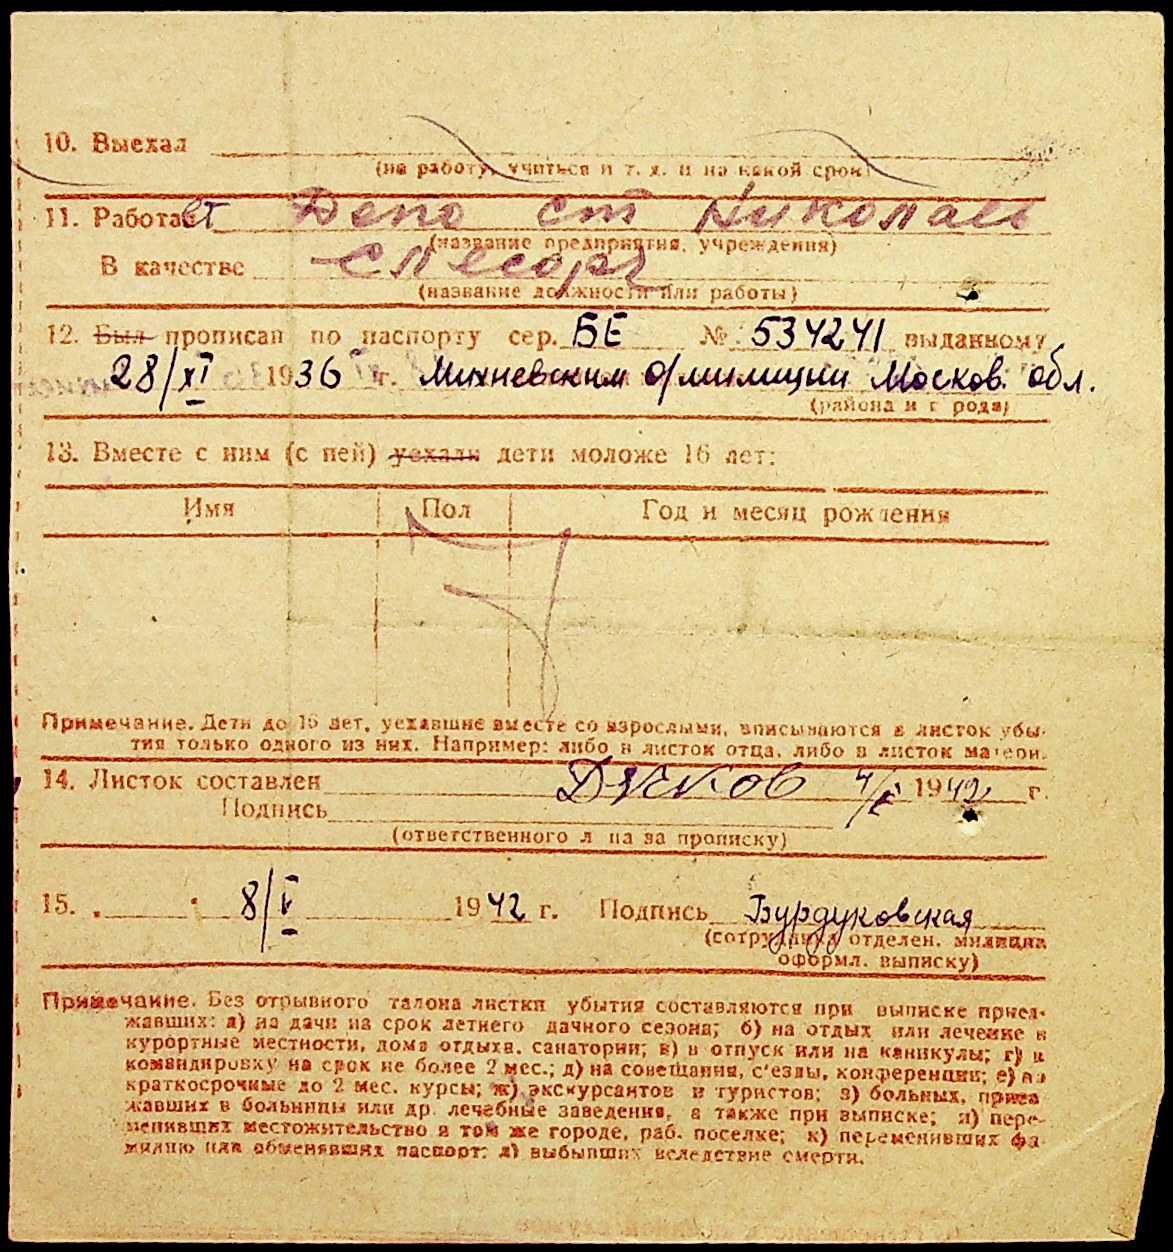 10. Выехал
(на работу, учиться и т. д. и на какой срок)
11. Работает Депо ст Николаев
(название предприятия, учреждения)
В качестве слесоря
(название должности или работы)
12. Был прописан по паспорту сер. БЕ № 534241 выданному
28/XI 1936 г. Михневским о/милиции Москов. обл.
(района и города)
13. Вместе с ним (с ней) уехали дети моложе 16 лет:
Имя Пол Год и месяц рождения
Примечание. Дети до 16 лет, уехавшие вместе со взрослыми, вписываются в листок убы-
тия только одного из них. Например: либо в листок отца, либо в листок матери.
14. Листок составлен Дячков 4/V 1942 г.
Подпись
(ответственного лица за прописку)
15. 8/V 1942 г. Подпись Бурдуковская
(сотрудника отделен. милиции
оформл. выписку)
Примечание. Без отрывного талона листки убытия составляются при выписке приез-
жавших: а) на дачи на срок летнего дачного сезона; б) на отдых или лечение в
курортные местности, дома отдыха, санатории; в) в отпуск или на каникулы; г) в
командировку на срок не более 2 мес.; д) на совещания, с'езды, конференции; е) на
краткосрочные до 2 мес. курсы; ж) экскурсантов и туристов; з) больных, приез
жавших в больницы или др. лечебные заведения, а также при выписке; и) пере-
менивших местожительство в том же городе, раб. поселке; к) переменивших фа-
милию или обменявших паспорт; л) выбывших вследствие смерти.